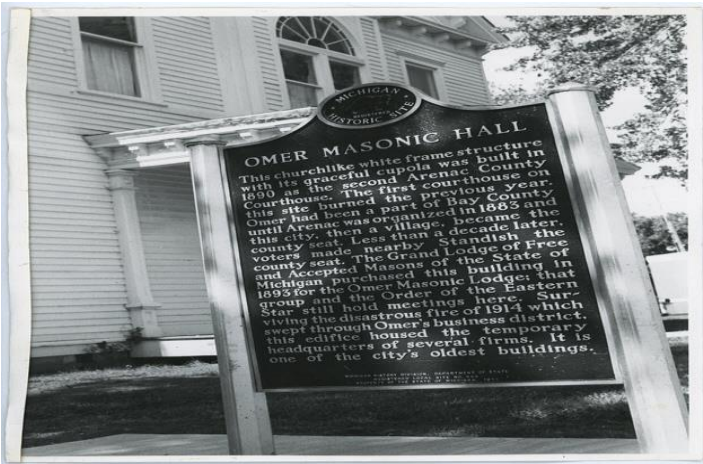 MICHIGAN
REGISTERED
HISTORIC SITE
OMER MASONIC HALL
This churchlike white frame structure
with its graceful cupola was built in
1890 as the second Arenac County
Courthouse. The first courthouse on
this site burned the previous year.
Omer had been a part of Bay County
until Arenac was organized in 1883 and
this city, then a village, became the
county seat. Less than a decade later
voters made nearby Standish the
county seat. The Grand Lodge of Free
and Accepted Masons of the State of
Michigan purchased this building in
1893 for the Omer Masonic Lodge; that
group and the Order of the Eastern
Star still hold meetings here. Sur-
viving the disastrous fire of 1914 which
swept through Omer's business district,
this edifice housed the temporary
headquarters of several firms. It is
one of the city's oldest buildings.
MICHIGAN HISTORY DIVISION, DEPARTMENT OF STATE
REGISTERED LOCAL SITE NO.
PROPERTY OF THE STATE OF MICHIGAN,